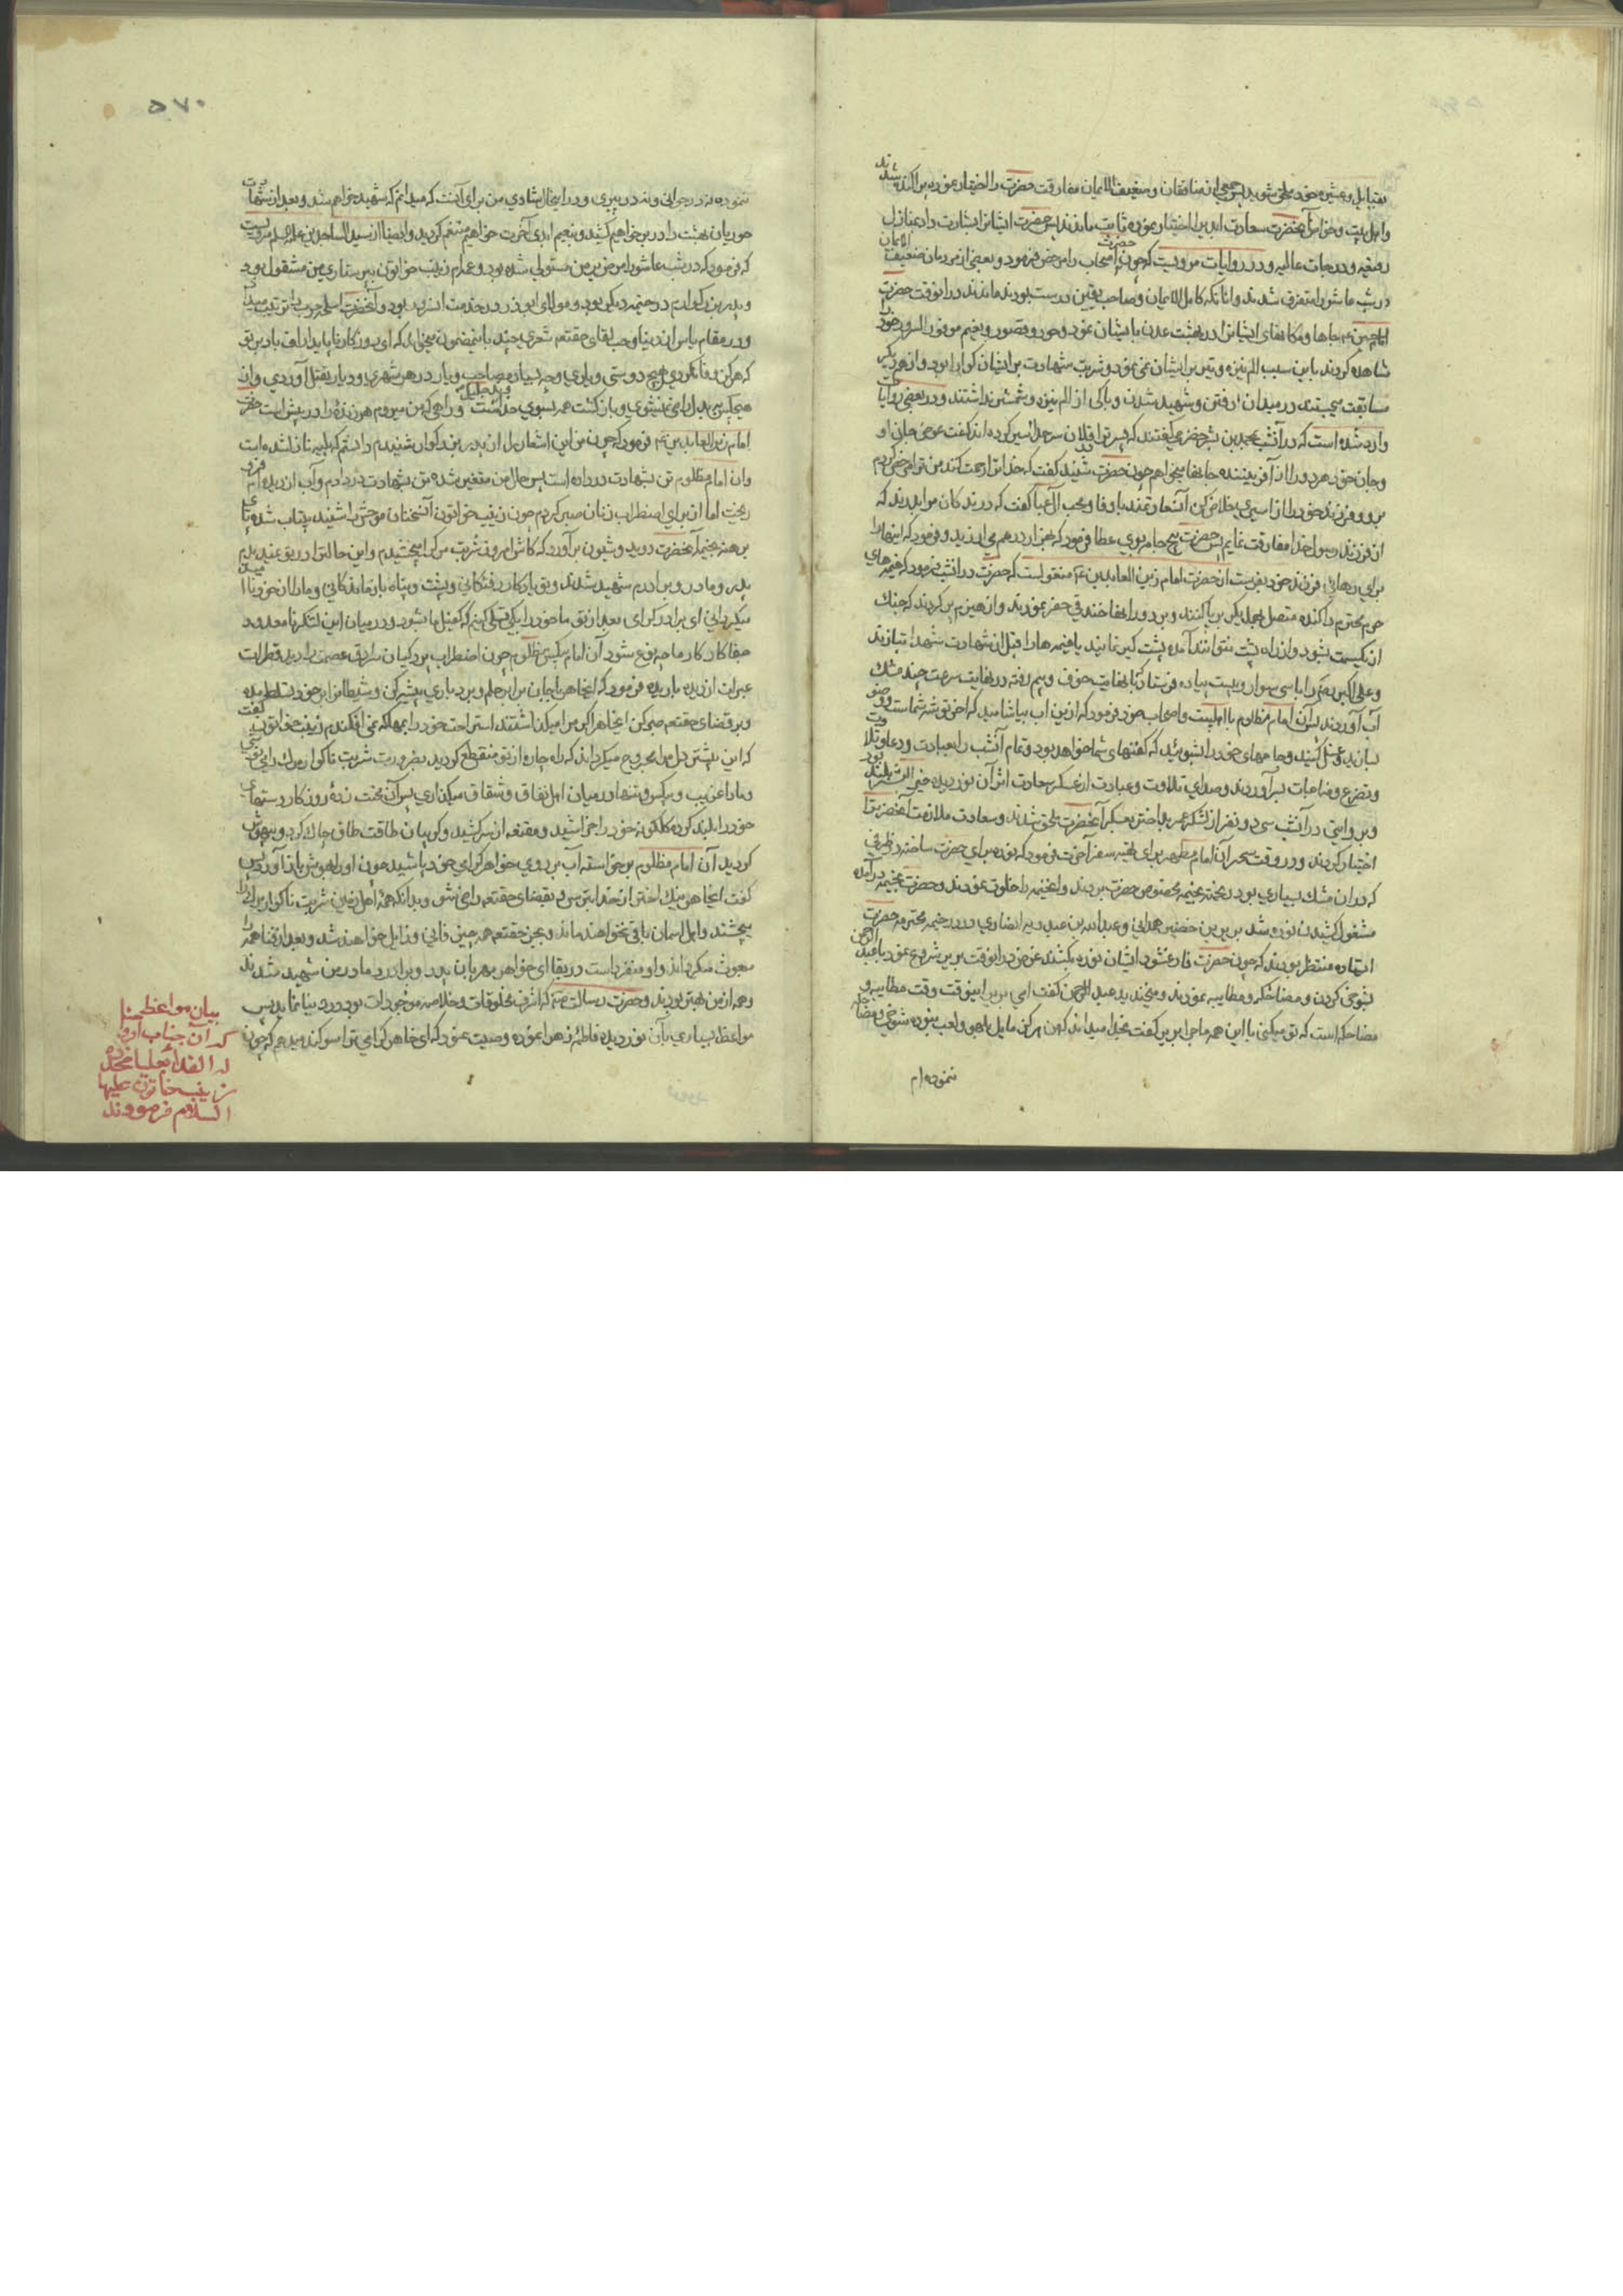 بقبایل و عشیره خود ملحق شوید پس جمعی از منافقان و ضعیف الایمان مفارقت حضرت را اختیار نموده پراکنده شدند
و اهل بیت و خواص آنحضرت سعادت ابدی را اختیار نموده ثابت ماندند پس حضرت ایشانرا بشارت داد بمنازل
رفیعه و درجات عالیه و در روایات مرویست که چون حضرت اصحاب را مرخص فرمود و بعضی از مردمان ضعیف الایمان
در شب عاشورا متفرق شدند و آنانکه کامل الایمان و صاحب یقین درست بودند ماندند در آنوقت حضرت
امام حسین ع جاها و مکانهای ایشانرا در بهشت عدن بایشان نمود و حور و قصور و نعیم موفور السرور خود
مشاهده کردند باین سبب الم نیزه و تیر بر ایشان نمی نمود و شربت شهادت بر ایشان گوارا بود و از همدیگر
مسابقت میجستند در میدان رفتن و شهید شدن و باکی از الم نیزه و شمشیر نداشتند و در بعضی روایات
وارد شده است که در آنشب بمحمد بن بشر حضرمی گفتند که پسر ترا فلان سرحد اسیر کرده اند گفت عوض جان او
و جان خود هر دو را از آفریننده جانها میخواهم چون حضرت شنید گفت که خدا ترا رحمت کند من ترا مرخص کردم
برو و فرزند خود را از اسیری خلاص کن آن سعادتمند باوفا و محب آل عبا گفت که درندکان مرا بدرند که
از فرزند رسول خدا مفارقت نمایم پس حضرت پنج جامه بوی عطا فرمود که هزار درهم می ارزید و فرمود که اینها را
برای رهائی فرزند خود بفرست از حضرت امام زین العابدین ع منقول است که حضرت در آنشب فرمود که خیمه های
حرم محترم را کنده متصل بیکدیگر برپا کنند و بر دور آنها خندقی حفر نمودند و از هیزم پر کردند که جنک
از یکسمت بشود و از راه پشت نتوانند آمده پشت کیر نمایند یا خیمه ها را قبل از شهادت شهدا بتازند
و علی اکبر ع را با سی سوار و بیست پیاده فرستاد که با نهایت خوف و بیم رفته در نهایت سرعت چند مشک
آب آوردند پس آن امام مظلوم با اهلبیت و اصحاب خود فرمود که ازین آب بیاشامید که آخر توشه شماست و وضو
بسازید و غسل کنید و جامهای خود را بشوئید که کفنهای شما خواهد بود و تمام آنشب را بعبادت و دعا و تلاوت
و تضرع و مناجات بسر آوردند و صدای تلاوت و عبادت از عسکر سعادت اثر آن نور دیده خیر البشر بلند بود
و بروایتی در آنشب سی و دو نفر از لشکر عمر بداختر بعسکر آنحضرت ملحق شدند و سعادت ملازمت آنحضرت را
اختیار کردند و در وقت سحر آن امام مطهر برای تهیه سفر آخرت فرمود که نوره برای حضرت ساختند در ظرفی
که در آن مشک بسیاری بود ریختند بخیمه مخصوص حضرت بردند و آنخیمه را خلوت نمودند و حضرت بخیمه در آمده
مشغول کشیدن نوره شد بریر بن خضیر همدانی و عبدالرحمن بن عبد ربه انصاری در در خیمه محترمه حضرت
ایستاده منتظر بودند که چون حضرت فارغ شود ایشان نوره بکشند عوض در آنوقت بریر شروع نمود با عبد الرحمن
بشوخی کردن و مضاحکه و مطایبه نمودند و میخندید عبد الرحمن گفت ای بریر اینوقت وقت مطایبه و
مضاحکه است که تو میکنی با این همه ماجرا بریر گفت بخدا میداند که من هرگز مایل بلهو و لعب نبوده شوخی و مضاحکه
ننموده ام
۵۷۰
ننموده نه در جوانی و نه در پیری و در اینحال شادی من برای آنست که میدانم که شهید خواهم شد و بعد از شهادت
حوریان بهشت را در بر خواهیم کشید و بنعیم ابدی آخرت خواهیم متنعم کردید و ایضا از سید الساجدین علیه السلام مرویست
که فرمود که در شب عاشورا مرض بر من مستولی شده بود و عمه ام زینب خواتون به پرستاری من مشغول بود
و پدر بزرکوارم در خیمه دیکر بود و مولای ابوذر در خدمت آنسرور بود و آنحضرت اسلحه حرب را ترتیب میداد
و در مقام یاس از دنیا و حب لقای حقتعم شعری چند باینمضمون میخواند که ای روزکار ناپایدار اف باد بر تو
که هرگز وفا نکردی بهیچ دوستی و یاری و چه بسیار مصاحب و یار در هر شهری و دیار بقتل آوردی و از
هیچکس ببدل راضی نمیشوی و بازکشت همه بسوی خداوند جلیل است و راهی که من میروم هر زنده را در پیش است حضرت
امام زین العابدین ع فرمود که چون من این اشعار را از پدر بزرکوار شنیدم دانستم که بلیه نازل شده است
و آن امام مظلوم تن بشهادت در داده است پس حال من متغیر شده من بشهادت در دادم و آب از دیده ام فرو
ریخت اما از برای اضطراب زنان صبر کردم چون زینب خواتون آنسخنان موحش را شنید بیتاب شده پای
برهنه بخیمه آنحضرت دوید و شیون برآورد که کاش امروز شربت مرک را میچشیدم و این حالت را در تو نمیدیدم
پدر و مادر و برادرم شهید شدند و تو یادکار رفتکانی و پشت و پناه بازماندکانی و ما را از خود ناامید
میکردانی ای برادر کرامی بعد از تو ما خود را بکه تسلی کنیم که کفیل ما شود و در میان این لشکر نامعدود
جفاکار کار ما چه نوع شود آن امام بیکس مظلوم چون اضطراب پردکیان سرادق عصمت را دید قطرات
عبرات از دیده باریده فرمود که ایخواهر با جان برابر حلم و بردباری پیشه کن و شیطانرا بر خود تسلط مده
و بر قضای حقتعم صبر کن ایخواهر اگر مرا میکذاشتند استراحت خود را بمهلکه نمی افکندم زینب خواتون گفت
که این بیشتر دل مرا مجروح میکرداند که راه چاره از تو منقطع کردیده بضرورت شربت ناکوار مرک را مینوشی
و ما را غریب و بیکس و تنها در میان اهل نفاق و شقاق میکذاری پس آن محنت زده روزکار دستهای
خود را بلند کرده کلکونه خود را خراشید و مقنعه از سر کشید و کریبان طاقت طاق چاک کرد و بیهوش
کردید آن امام مظلوم برخواسته آب بر روی خواهر کرامی خود پاشید چون او را بهوش باز آورد پس
گفت ایخواهر نیک اختر از خدا بترس و بقضای حقتعم راضی شو و بدانکه همه اهل زمین شربت ناکوار مرک را
میچشند و اهل آسمان باقی نخواهند ماند و بجز حقتعم همه چیز فانی و زایل خواهند شد و بعد از فنا همه را
مبعوث میکرداند و او منفرد است در بقا ای خواهر مهربان پدر و برادر و مادر من شهید شدند
و همه از من بهتر بودند و حضرت رسالت صم که اشرف مخلوقات و خلاصه موجودات بود در دنیا نماند پس
مواعظ بسیاری بآن نور دیده فاطمه زهرا نموده وصیت نمود که ای خواهر کرامی ترا سوکند میدهم که چون
بیان مواعظی
که آن جناب
زینب خاتون علیها
السلام فرمودند